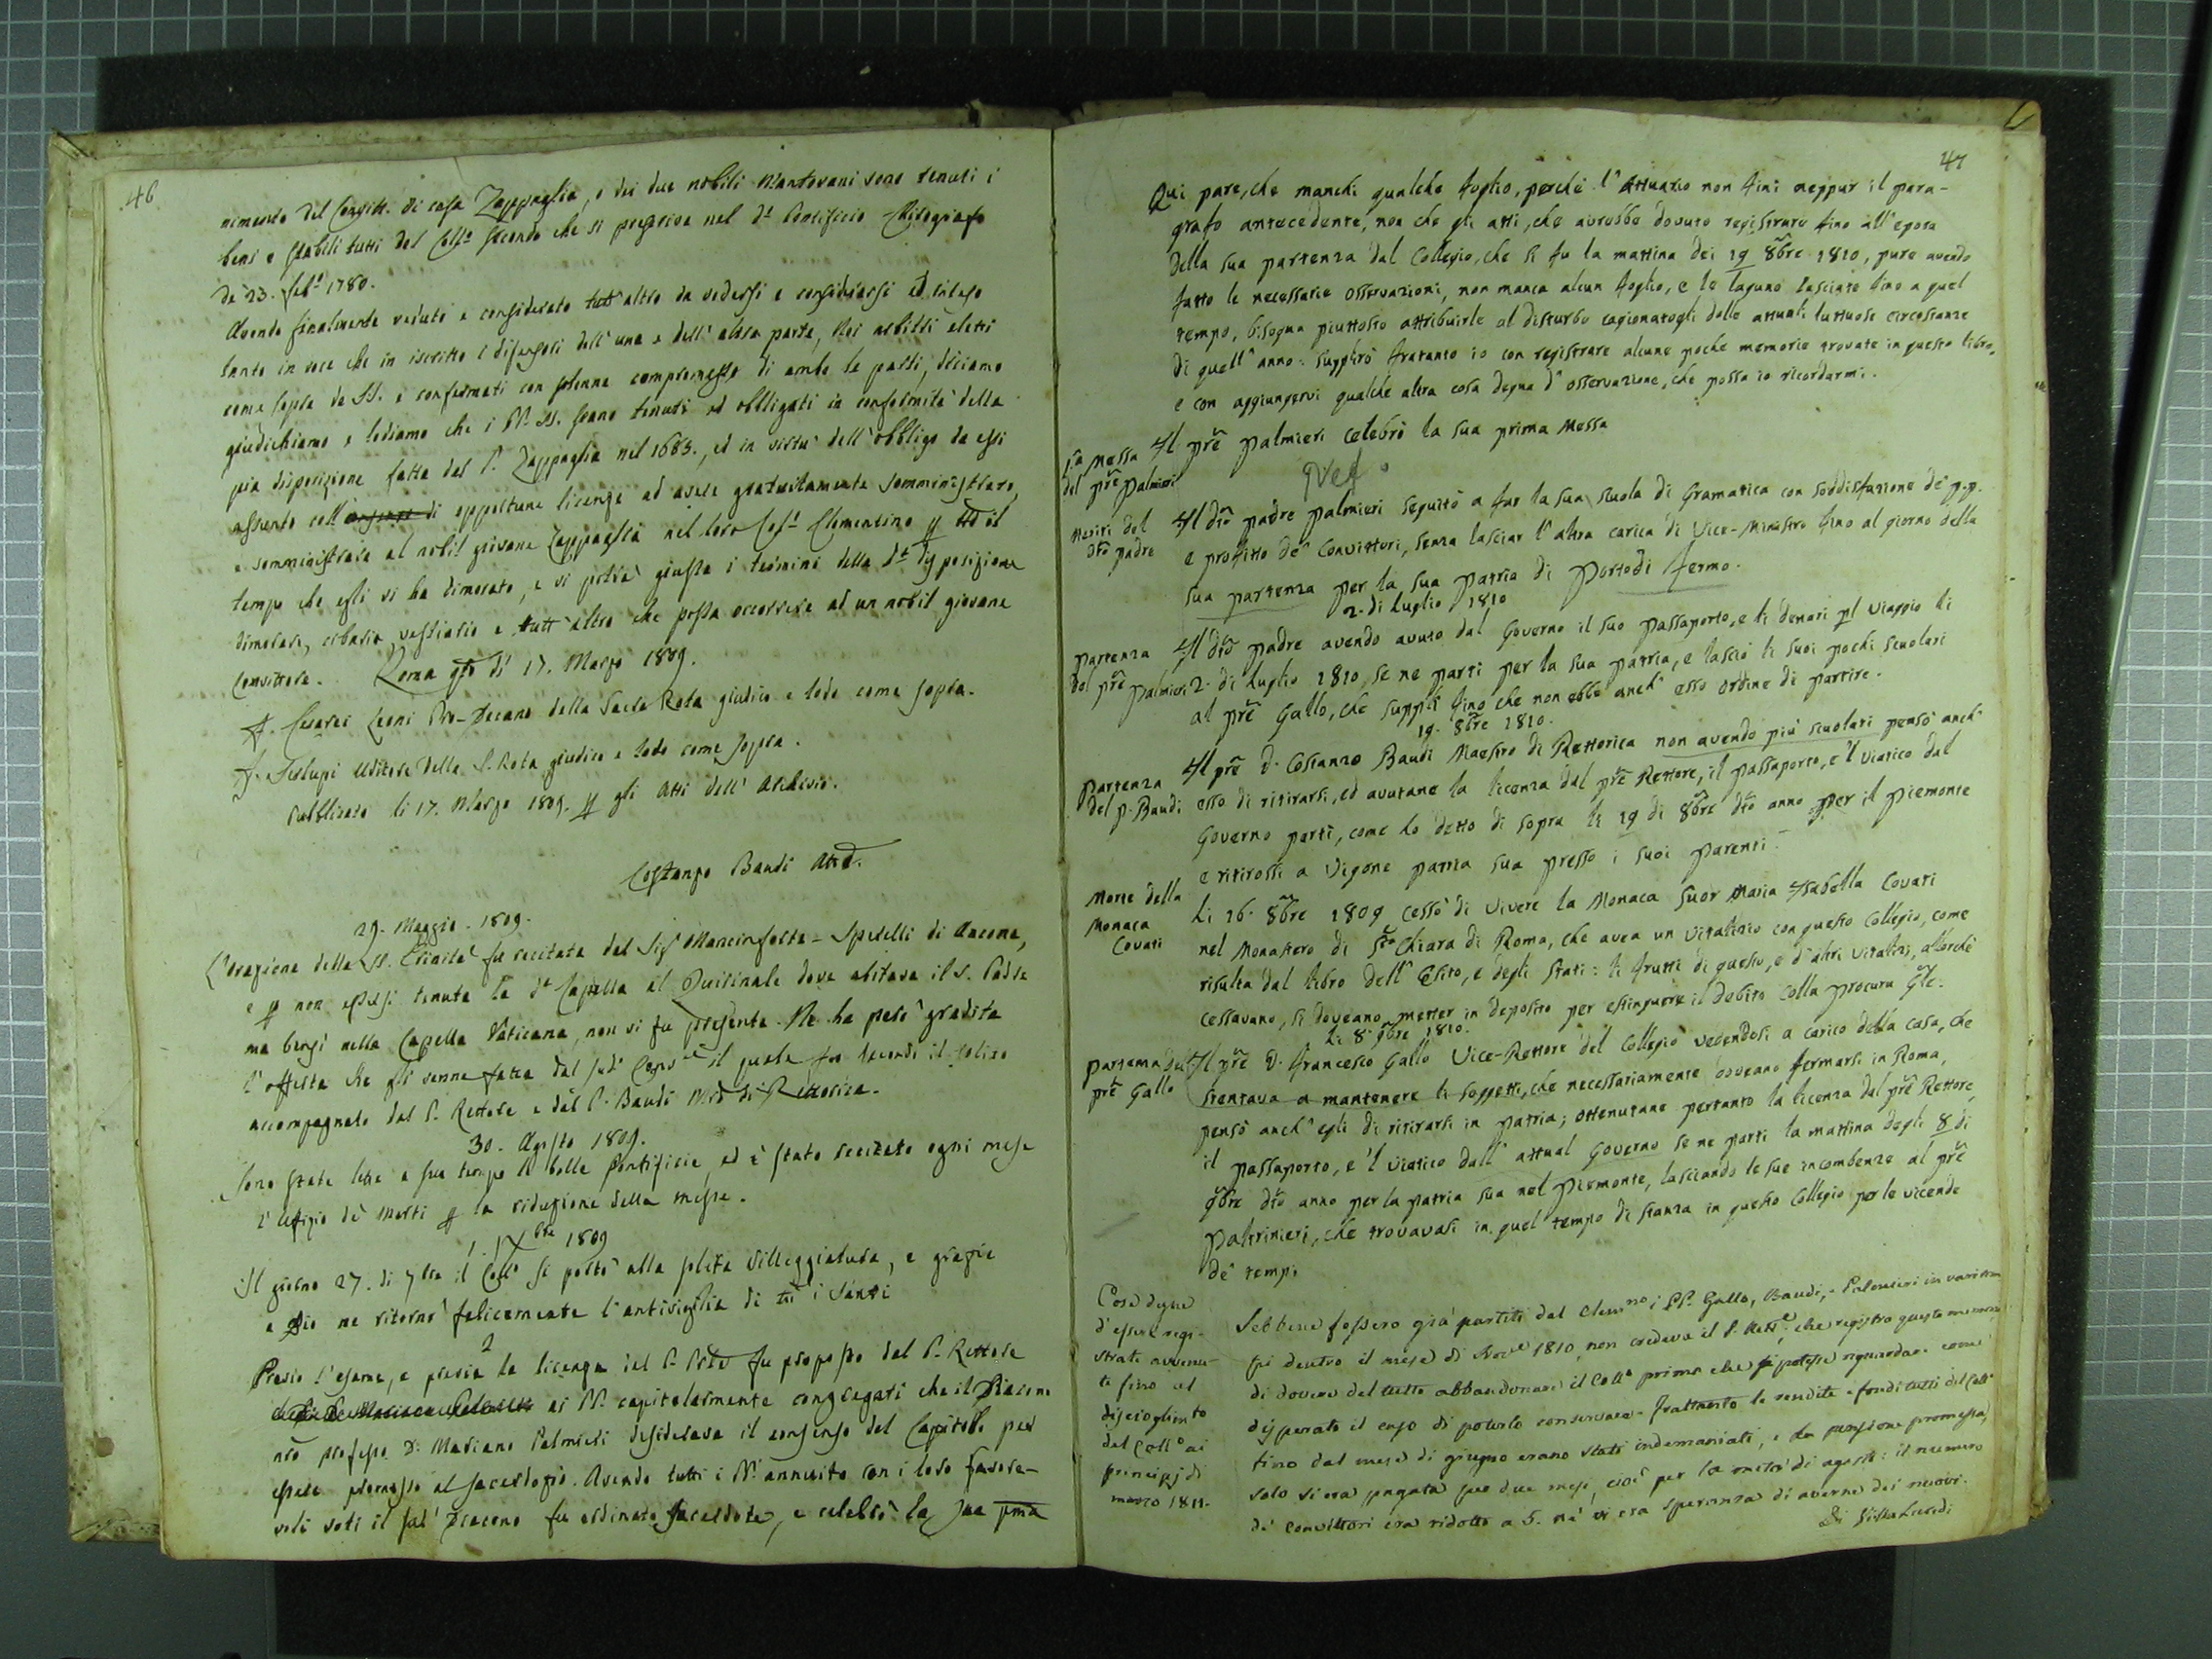 46
nimento del Convitt. di casa Zappaglia, e dei due nobili Mantovani sono tenuti i
beni e stabili tutti del Coll.o secondo che si prescrive nel d.o Pontificio Chirografo
de' 23. Feb.o 1780.
Avendo finalmente veduto e considerato tutt'altro da vedersi e considerarsi ed inteso
tanto in voce che in iscritto i difensori dell'una e dell'altra parte, Noi arbitri eletti
come sopra da SS. e confermati con solenne compromesso di ambe le parti, diciamo
giudichiamo e lodiamo che i PP. SS. siano tenuti ed obbligati in conformità della
pia disposizione fatta dal P. Zappaglia nel 1683., ed in virtù dell'obbligo da essi
assunto coll' di opportune licenze ad avere gratuitamente somministrare,
e somministrare al nobil giovane Zappaglia nel loro Coll.o Clementino p tto il
tempo che egli vi ha dimorato, e vi potrà giusta i termini della d.a disposizione
dimorare, cibario, vestiario e tutt'altro che possa occorrere ad un nobil giovane
Convittore. Roma qto dì 17. Marzo 1809.
F. Cesarei Leoni Pro-Decano della Sacra Rota giudico e lodo come sopra.
F. Serlupi Uditore della S. Rota giudico e lodo come sopra.
Pubblicato li 17. Marzo 1809. p gli Atti dell' Archivio.
Costanzo Baudi Att.o
29. Maggio. 1809.
L'orazione della SS. Trinità fu recitata dal Sig.r Mancinforte-Sperelli di Ancona,
e p non essersi tenuta la d.a Cappella al Quirinale dove abitava il S. Padre
ma bensì nella Cappella Vaticana, non vi fu presente. Ne ha però gradita
l'offerta che gli venne fatta dal sud.o Conv.re il quale fu secondo il solito
accompagnato dal P. Rettore e dal P. Baudi Mro di Rettorica.
30. Agosto 1809.
Sono state lette a suo tempo le bolle Pontificie, ed è stato recitato ogni mese
l'Uffizio de' Morti p la riduzione delle messe.
1. Xbre 1809
Il giorno 27. di 7bre il Coll.o si portò alla solita villeggiatura, e grazie
a Dio ne ritornò felicemente l'antivigilia di tti i Santi
2
Previo l'esame, e previa la licenza del P. fu proposto dal P. Rettore
ai PP. capitolarmente congregati che il Diacono
nro professo D. Mariano Palmieri desiderava il consenso del Capitolo per
essere promosso al sacerdozio. Avendo tutti i PP. annuito con i loro favore-
voli voti il sud.o Diacono fu ordinato sacerdote, e celebrò la sua pma
47
Qui pare, che manchi qualche foglio, perchè l'Attuario non finì neppur il para-
grafo antecedente, non che gli atti, che avrebbe dovuto registrare fino all'epoca
della sua partenza dal Collegio, che si fu la mattina dei 19 8bre 1810, pure avendo
fatto le necessarie osservazioni, non manca alcun foglio, e le lagune lasciate fino a quel
tempo, bisogna piuttosto attribuirle al disturbo cagionatogli dalle attuali luttuose circostanze
di quell'anno: supplirò fratanto io con registrare alcune poche memorie trovate in questo libro,
e con aggiungervi qualche altra cosa degna d'osservazione, che possa io ricordarmi.
1.a Messa
del prẽ Palmieri
Il prẽ Palmieri celebrò la sua prima Messa
Meriti del
dto padre
Il dto padre Palmieri seguitò a far la sua scuola di Gramatica con soddisfazione de' p.p.
e profitto de' Convittori, senza lasciar l'altra carica di Vice-Ministro fino al giorno della
sua partenza per la sua patria di Porto di Fermo.
2. di Luglio 1810
Partenza
del prẽ Palmieri
Il dto padre avendo avuto dal Governo il suo passaporto, e li denari pl viaggio li
2. di Luglio 1810, se ne partì per la sua patria, e lasciò li suoi pochi scuolari
al prẽ Gallo, che supplì fino che non ebbe anch'esso ordine di partire.
19. 8bre 1810.
Partenza
del p. Baudi
Il prẽ D. Costanzo Baudi Maestro di Rettorica non avendo più scuolari pensò anch'
esso di ritirarsi, ed avutane la licenza dal prẽ Rettore, il passaporto, e'l viatico dal
Governo partì, come ho detto di sopra li 19 di 8bre dto anno per il Piemonte
e ritirossi a Vigone patria sua presso i suoi parenti.
Morte della
Monaca
Covati
Li 26. 8bre 1809 cessò di vivere la Monaca Suor Maria Isabella Covati
nel Monastero di Sta Chiara di Roma, che avea un vitalizio con questo Collegio, come
risulta dal libro dell'Esito, e degli Stati: li frutti di questo, e d'altri vitalizi, allorchè
cessavano, si doveano metter in deposito per estinguere il debito colla procura Gle.
Li 8. 9bre 1810.
Partenza del
prẽ Gallo
Il prẽ D. Francesco Gallo Vice-Rettore del Collegio vedendosi a carico della casa, che
stentava a mantenere li soggetti, che necessariamente doveano fermarsi in Roma,
pensò anch'egli di ritirarsi in patria; ottenutane pertanto la licenza dal prẽ Rettore,
il passaporto, e'l viatico dall'attual Governo se ne partì la mattina degli 8 di
9bre dto anno per la patria sua nel Piemonte, lasciando le sue incombenze al prẽ
Paltrinieri, che trovavasi in quel tempo di stanza in questo Collegio per le vicende
de' tempi
Cose degne
d'essere regi-
strate avvenu-
te fino al
discioglimto
del Coll.o ai
principj di
marzo 1811.
Sebbene fossero già partiti dal Clem.no i PP. Gallo, Baudi, e Palmieri in vari tem
pi dentro il mese di Nov.e 1810, non credeva il P. Rett.e, che registrò queste memorie
di dovere del tutto abbandonare il Coll.o prima che si potesse riguardare come
disperato il caso di poterlo conservare. Frattanto le rendite e fondi tutti del Coll.o
fino dal mese di giugno erano stati indemaniati, e la pensione promessa
solo si era pagata per due mesi, cioè per la metà di agosto: il numero
de' convittori era ridotto a 5. nè vi era speranza di averne dei nuovi.